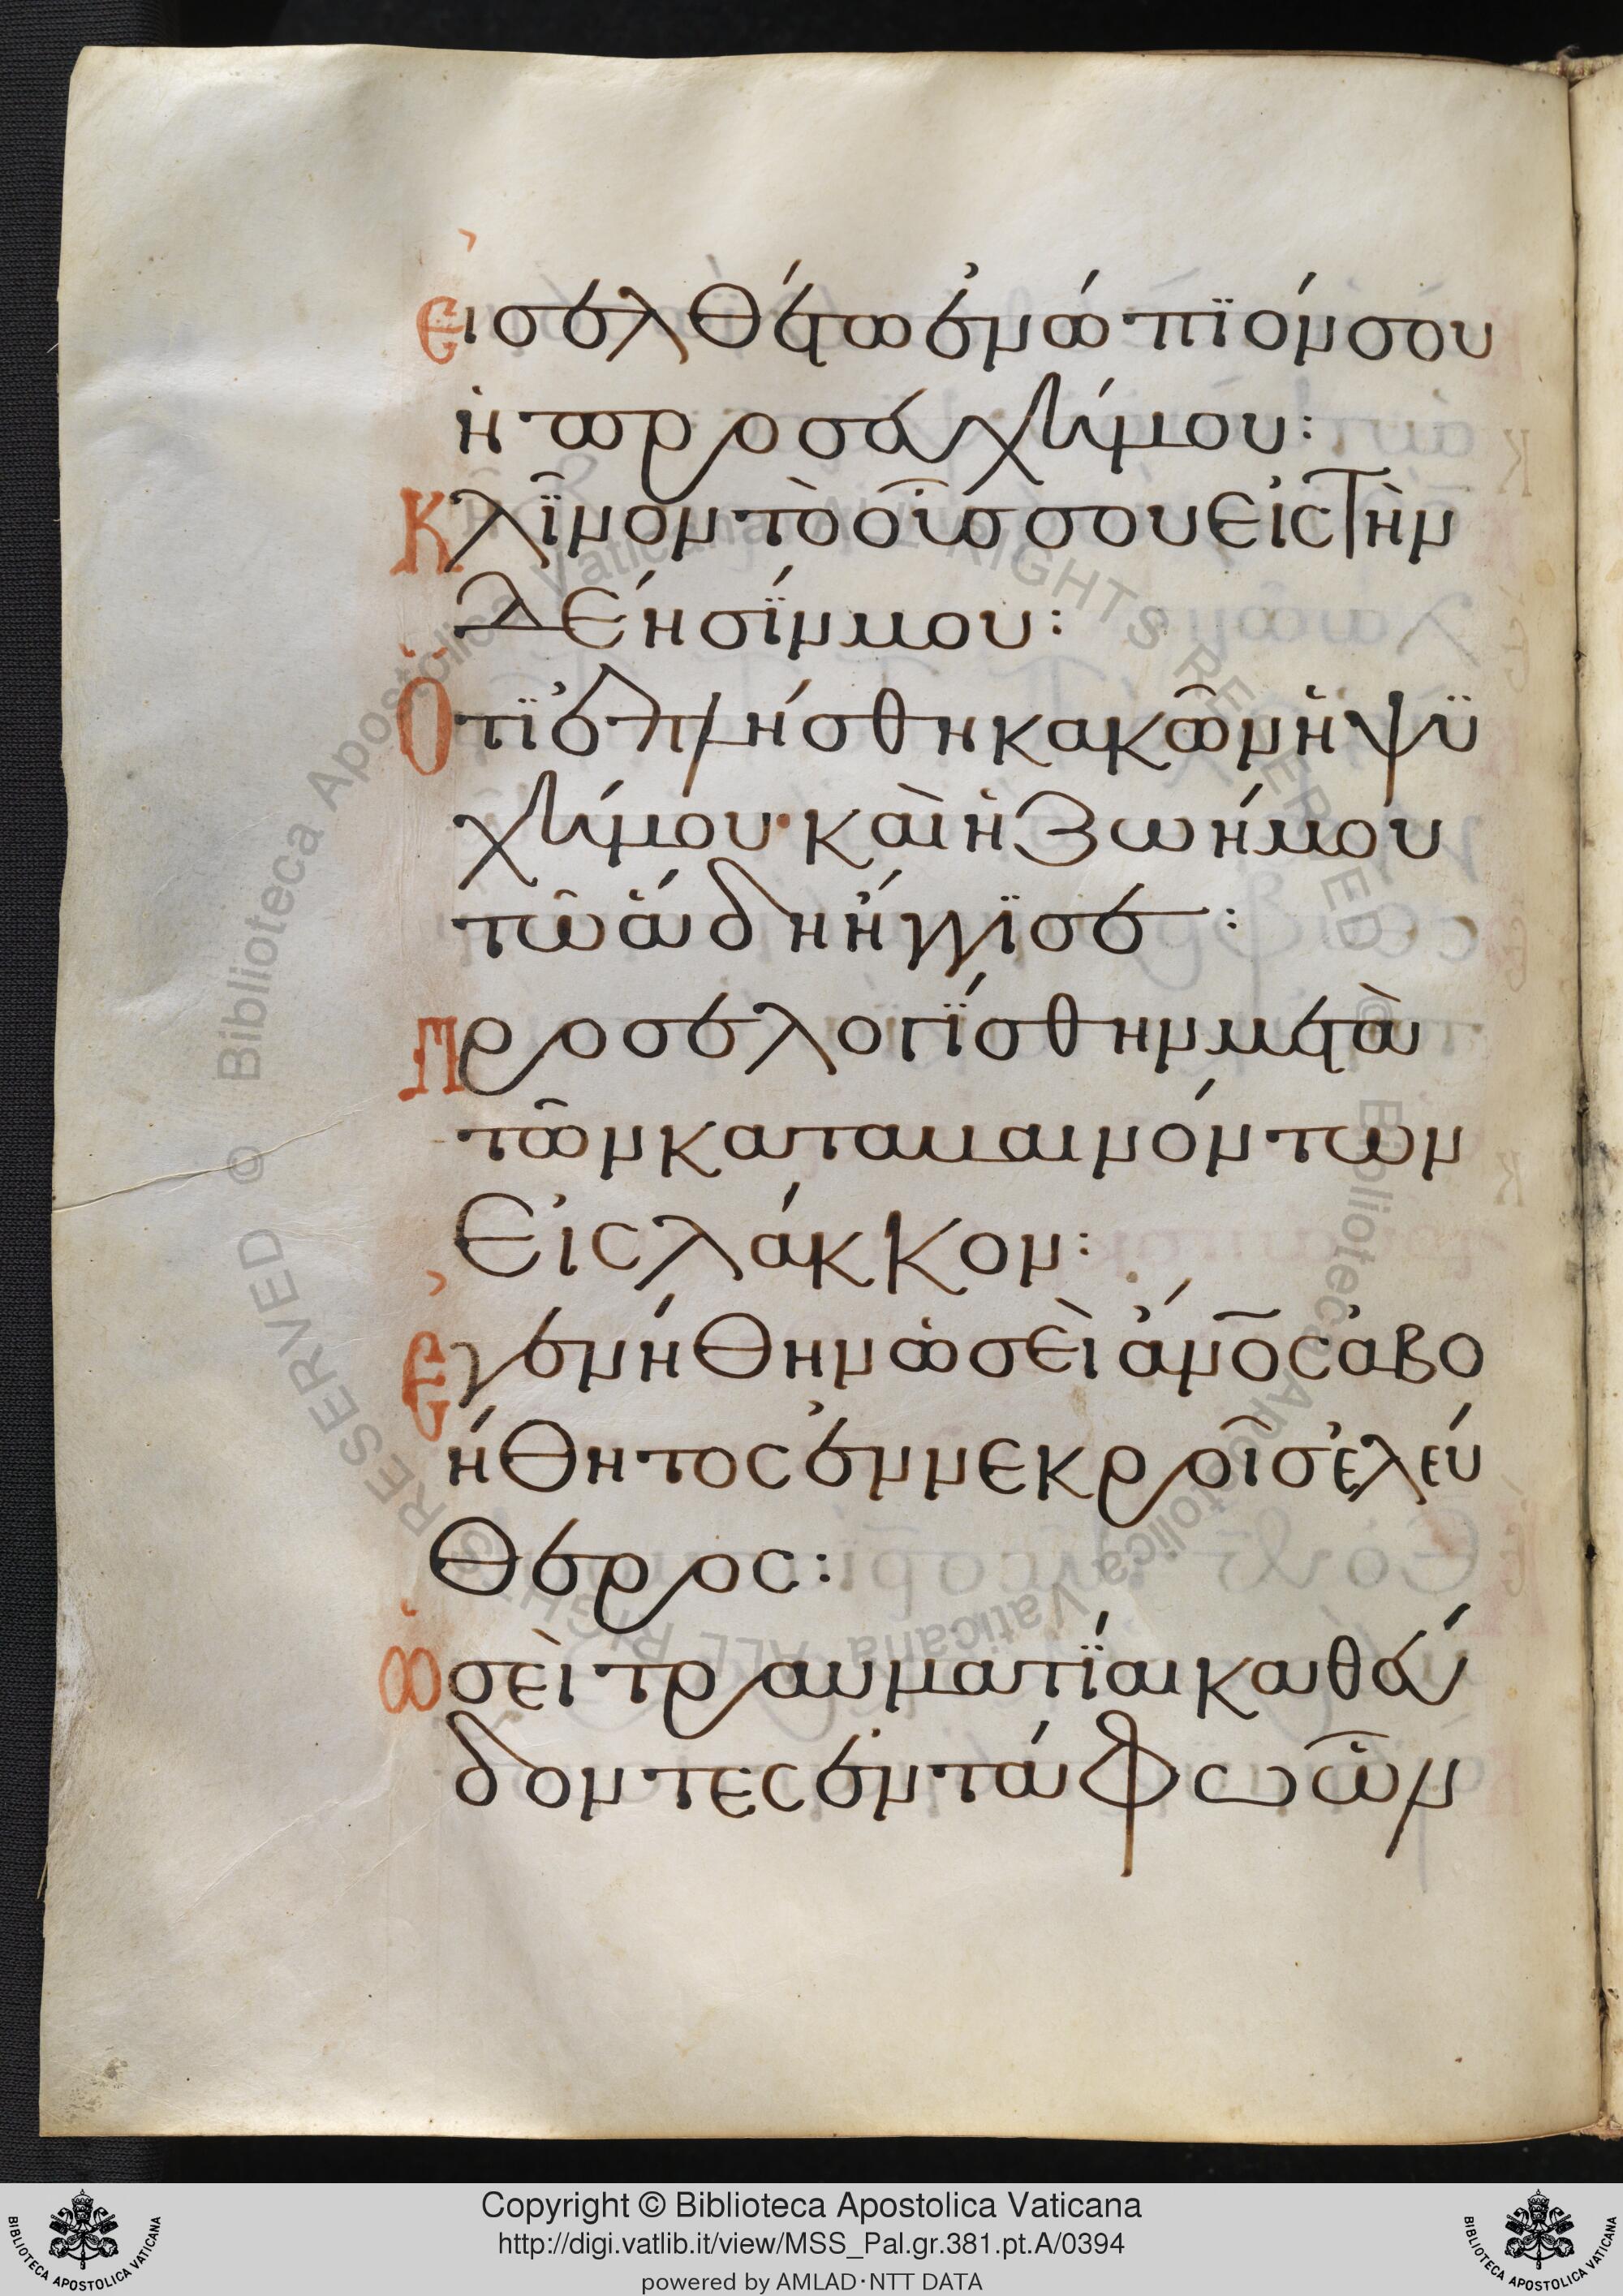 Εἰσελθέτω ἐνώπϊόν σου
ἡ προσευχήν μου:
Κλῖνον τὸ οὖς σου εἰς τὴν
δέησΐν μου:
Ὅτϊ ἐπλήσθη κακῶν ἡ ψϋ
χήν μου· καὶ ἡ ζωή μου
τῶ ἅδη ἤγγϊσε:
Προσελογΐσθην μετὰ
τῶν καταβαινόντων
εἰς λάκκον:
Ἐγενήθην ὡσεὶ ἄν̅ο̅ς ἀβο
ήθητος ἐν νεκροῖς ἐλεύ
θερος:
Ὡσεὶ τραυματΐαι καθεύ
δοντες ἐν τάφω ὧν
Copyright © Biblioteca Apostolica Vaticana
http://digi.vatlib.it/view/MSS_Pal.gr.381.pt.A/0394
powered by AMLAD·NTT DATA